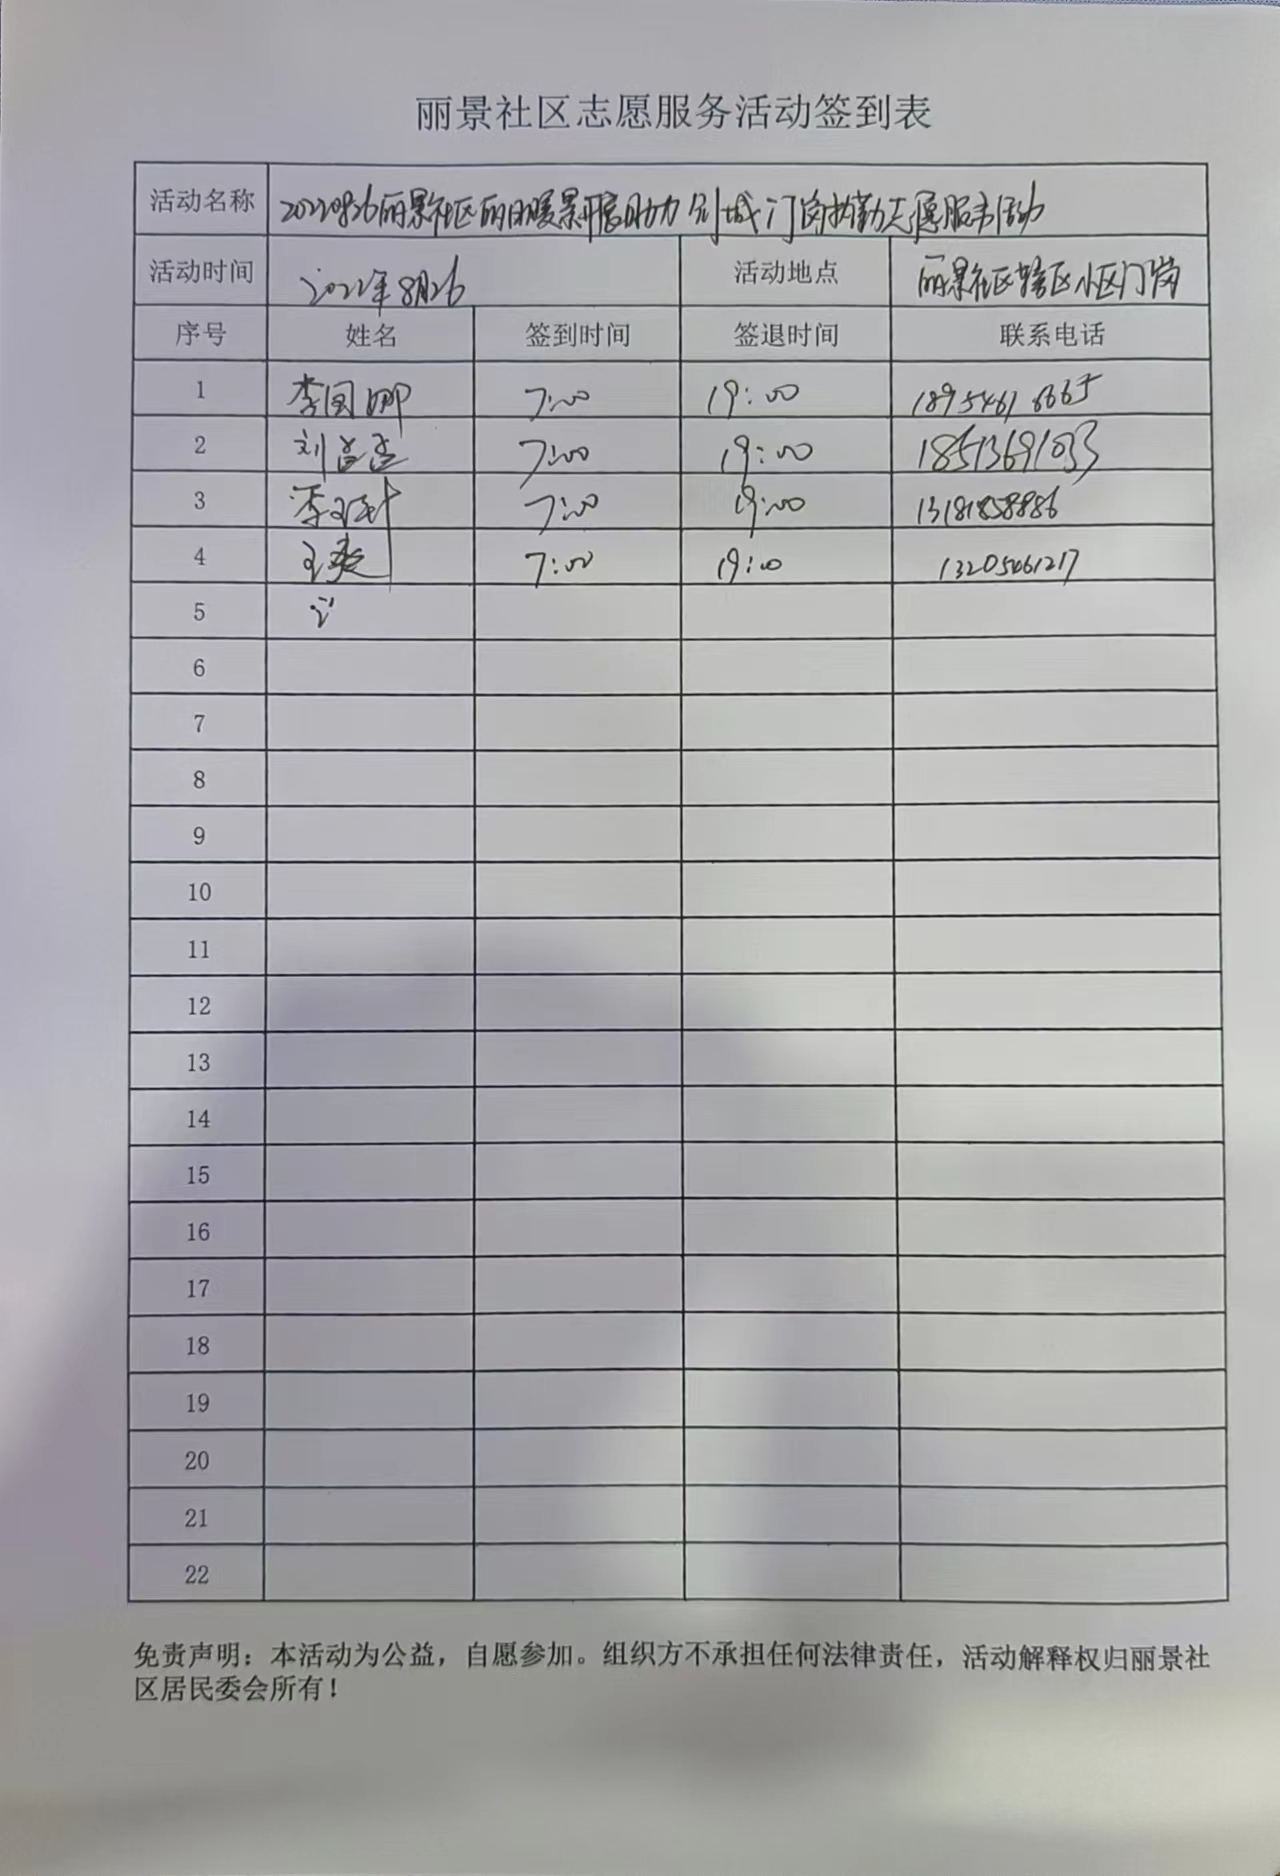 丽景社区志愿服务活动签到表
活动名称 20220826丽景社区丽日暖景开展助力创城门岗执勤志愿服务活动
活动时间 2022年8月26 活动地点 丽景社区辖区小区门岗
序号 姓名 签到时间 签退时间 联系电话
1 李国娜 7:00 19:00 18954616665
2 刘 7:00 19:00 18513691033
3 李 7:00 19:00 13181858886
4 王爽 7:00 19:00 13205461217
5
6
7
8
9
10
11
12
13
14
15
16
17
18
19
20
21
22
免责声明：本活动为公益，自愿参加。组织方不承担任何法律责任，活动解释权归丽景社
区居民委会所有！